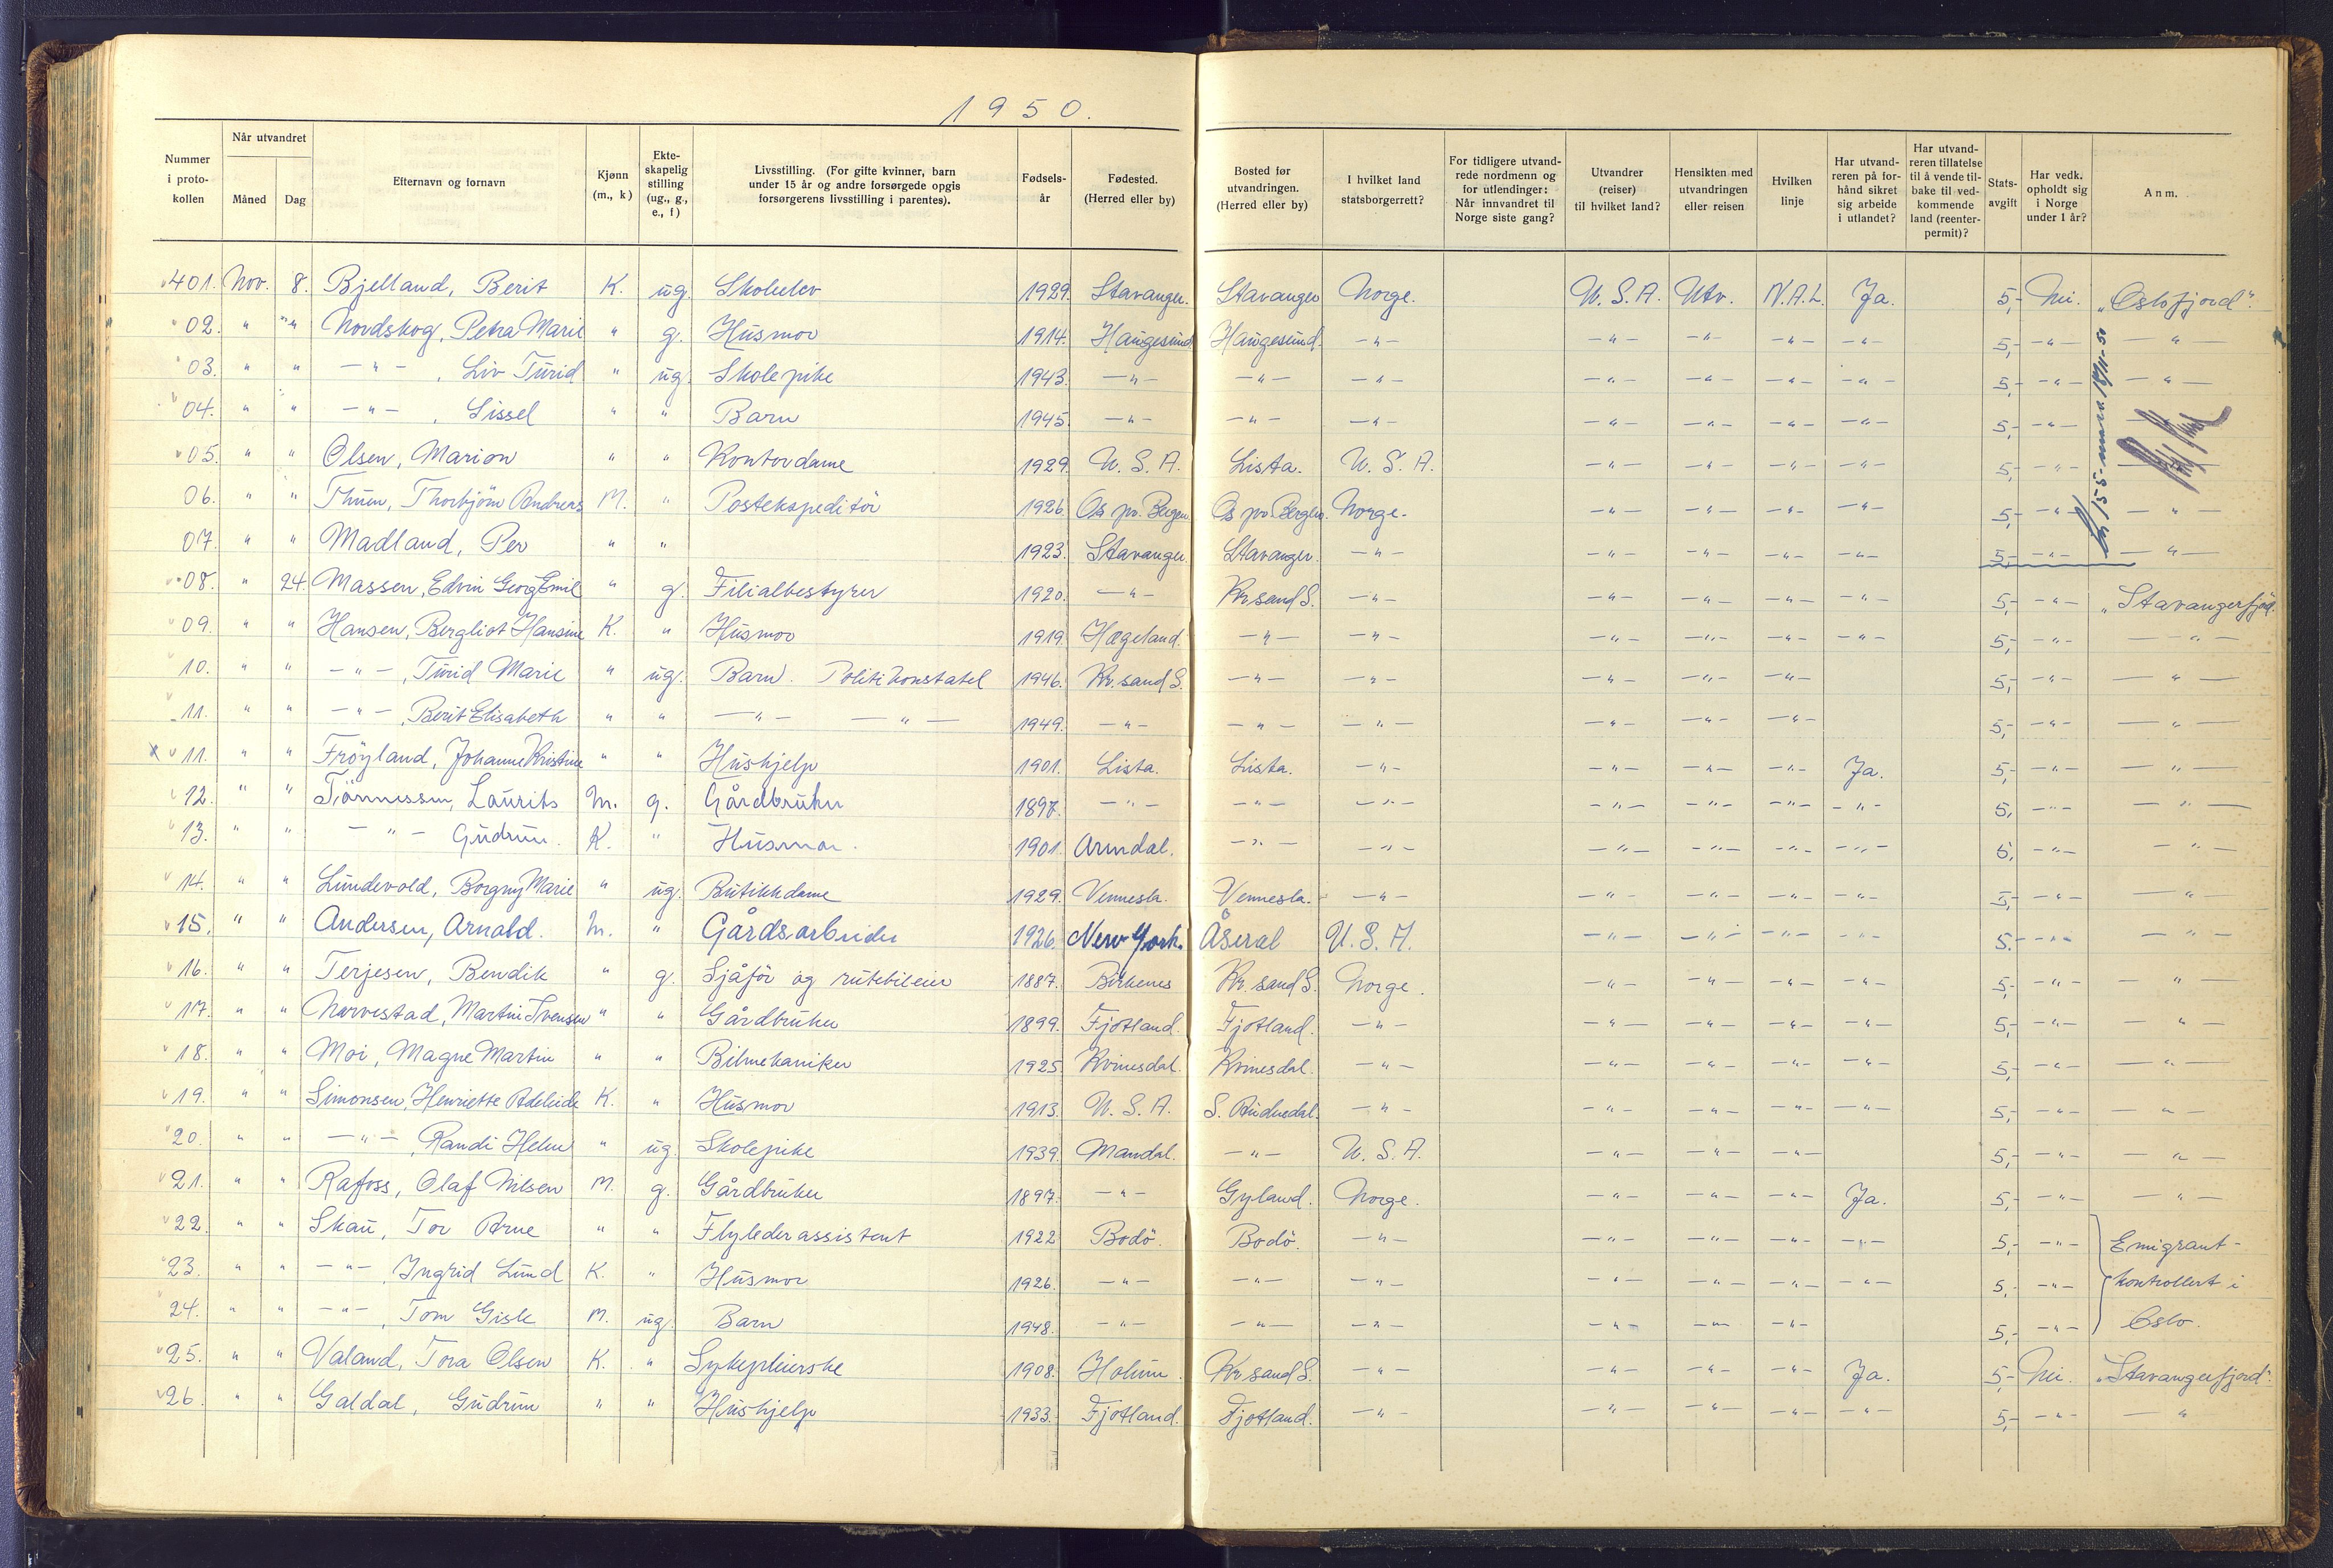 1950.
Nummer i proto-kollen | Når utvandret Måned | Dag | Efternavn og fornavn | Kjønn (m., k) | Ekte-skapelig stilling (ug., g., e., f) | Livsstilling. (For gifte kvinner, barn under 15 år og andre forsørgede opgis forsørgerens livsstilling i parentes). | Fødsels-år | Fødested. (Herred eller by) | Bosted før utvandringen. (Herred eller by) | I hvilket land statsborgerrett? | For tidligere utvand-rede nordmenn og for utlendinger: Når innvandret til Norge siste gang? | Utvandrer (reiser) til hvilket land? | Hensikten med utvandringen eller reisen | Hvilken linje | Har utvand-reren på for-hånd sikret sig arbeide i utlandet? | Har utvand-reren tillatelse til å vende til-bake til ved-kommende land (reenter-permit)? | Stats-avgift | Har vedk. opholdt sig i Norge under 1 år? | Anm.
401. Nov. 8. Bjelland, Berit K. ug. Skoleelev 1929. Stavanger. Stavanger Norge. U.S.A. Utv. N.A.L. Ja. 5,- Nei. "Oslofjord".
02. " " Nordskog, Petra Marie " g. Husmor 1914. Haugesund Haugesund. -"- -"- -"- -"- -"- 5,- -"- -"-
03. " " -"-, Liv Turid " ug. Skolepike 1943. -"- -"- -"- -"- -"- -"- -"- 5,- -"- -"-
04. " " -"-, Sissel " " Barn 1945. -"- -"- -"- -"- -"- -"- -"- 5,- -"-
05. " " Olsen, Marion " " Kontordame 1929. U.S.A. Lista. U.S.A. -"- -"- -"- -"- 5,- -"-
06. " " Thuen, Thorbjörn Andreas M. " Postekspeditör 1926. Os pr. Bergen. Os pr. Bergen. Norge. -"- -"- -"- -"- 5,- -"- -"-
07. " " Madland, Per " " 1923. Stavanger. Stavanger. -"- -"- -"- -"- -"- 5,- -"- -"-
08. " 24. Massen, Edvin Georg Emil " g. Filialbestyrer 1920. -"- Kr.sand S. -"- -"- -"- -"- -"- 5,- -"- "Stavangerfjord.
09. " " Hansen, Bergliot Hansine K. " Husmor 1919. Hægeland. -"- -"- -"- -"- -"- -"- 5,- -"- -"-
10. " " -"-, Turid Marie " ug. Barn. Politikonstabel 1946. Kr.sand S. -"- -"- -"- -"- -"- 5,- -"- -"-
11. " " -"-, Berit Elisabeth " " -"- -"- 1949. -"- -"- -"- -"- -"- -"- 5,- -"- -"-
x 11. " " Fröyland, Johanne Kristine " " Hushjelp 1901. Lista. Lista. -"- -"- -"- -"- Ja. 5,- -"- -"-
12. " " Tönnessen, Laurits M. g. Gårdbruker 1897. -"- -"- -"- -"- -"- -"- -"- 5, -"- -"-
13. " " -"- Gudrun. K. " Husmor. 1901. Arendal. -"- -"- -"- -"- -"- -"- 5, -"- -"-
14. " " Lundevold, Borgny Marie " ug. Butikkdame 1929. Vennesla. Vennesla. -"- -"- -"- -"- -"- 5,- -"- -"-
15. " " Andersen, Arnold. M. " Gårdsarbeider 1926. New York. Åseral U.S.A. -"- -"- -"- -"- 5.- -"- -"-
16. " " Terjesen, Bendik " g. Sjåför og rutebileier 1887. Birkenes Kr.sand S. Norge. -"- -"- -"- -"- 5,- -"- -"-
17. " " Narvestad, Martin Svensen " " Gårdbruker 1899. Fjotland. Fjotland. -"- -"- -"- -"- -"- 5,- -"- -"-
18. " " Moi, Magne Martin " " Bilmekaniker 1925. Kvinesdal. Kvinesdal. -"- -"- -"- -"- -"- 5,- -"- -"-
19. " " Simonsen, Henriette Adeleide K. " Husmor 1913. U.S.A. S. Audnedal. -"- -"- -"- -"- -"- 5,- -"- -"-
20. " " -"-, Randi Helen " ug. Skolepike 1939. Mandal. -"- U.S.A. -"- -"- -"- 5,- -"- -"-
21. " " Rafoss, Olaf Nilsen M. g. Gårdbruker 1897. -"- Gyland. Norge. -"- -"- -"- Ja. 5,- -"- -"-
22. " " Skau, Tor Arne " " Flylederassistent 1922 Bodö. Bodö. -"- -"- -"- -"- -"- 5,- -"- Emigrant-
23. " " -"-, Ingrid Lund K. " Husmor 1926. -"- -"- -"- -"- -"- -"- -"- 5,- -"- kontrollert i
24. " " -"-, Tom Gisle M. ug. Barn 1948. -"- -"- -"- -"- -"- -"- 5,- -"- Oslo.
25. " " Valand, Tora Olsen K. " Sykepleierske 1908. Holum. Kr.sand S. -"- -"- -"- -"- Ja. 5,- Nei. "Stavangerfjord".
26. " " Galdal, Gudrun " " Hushjelp 1933. Fjotland. Fjotland. -"- -"- -"- -"- -"- 5,- -"- -"-